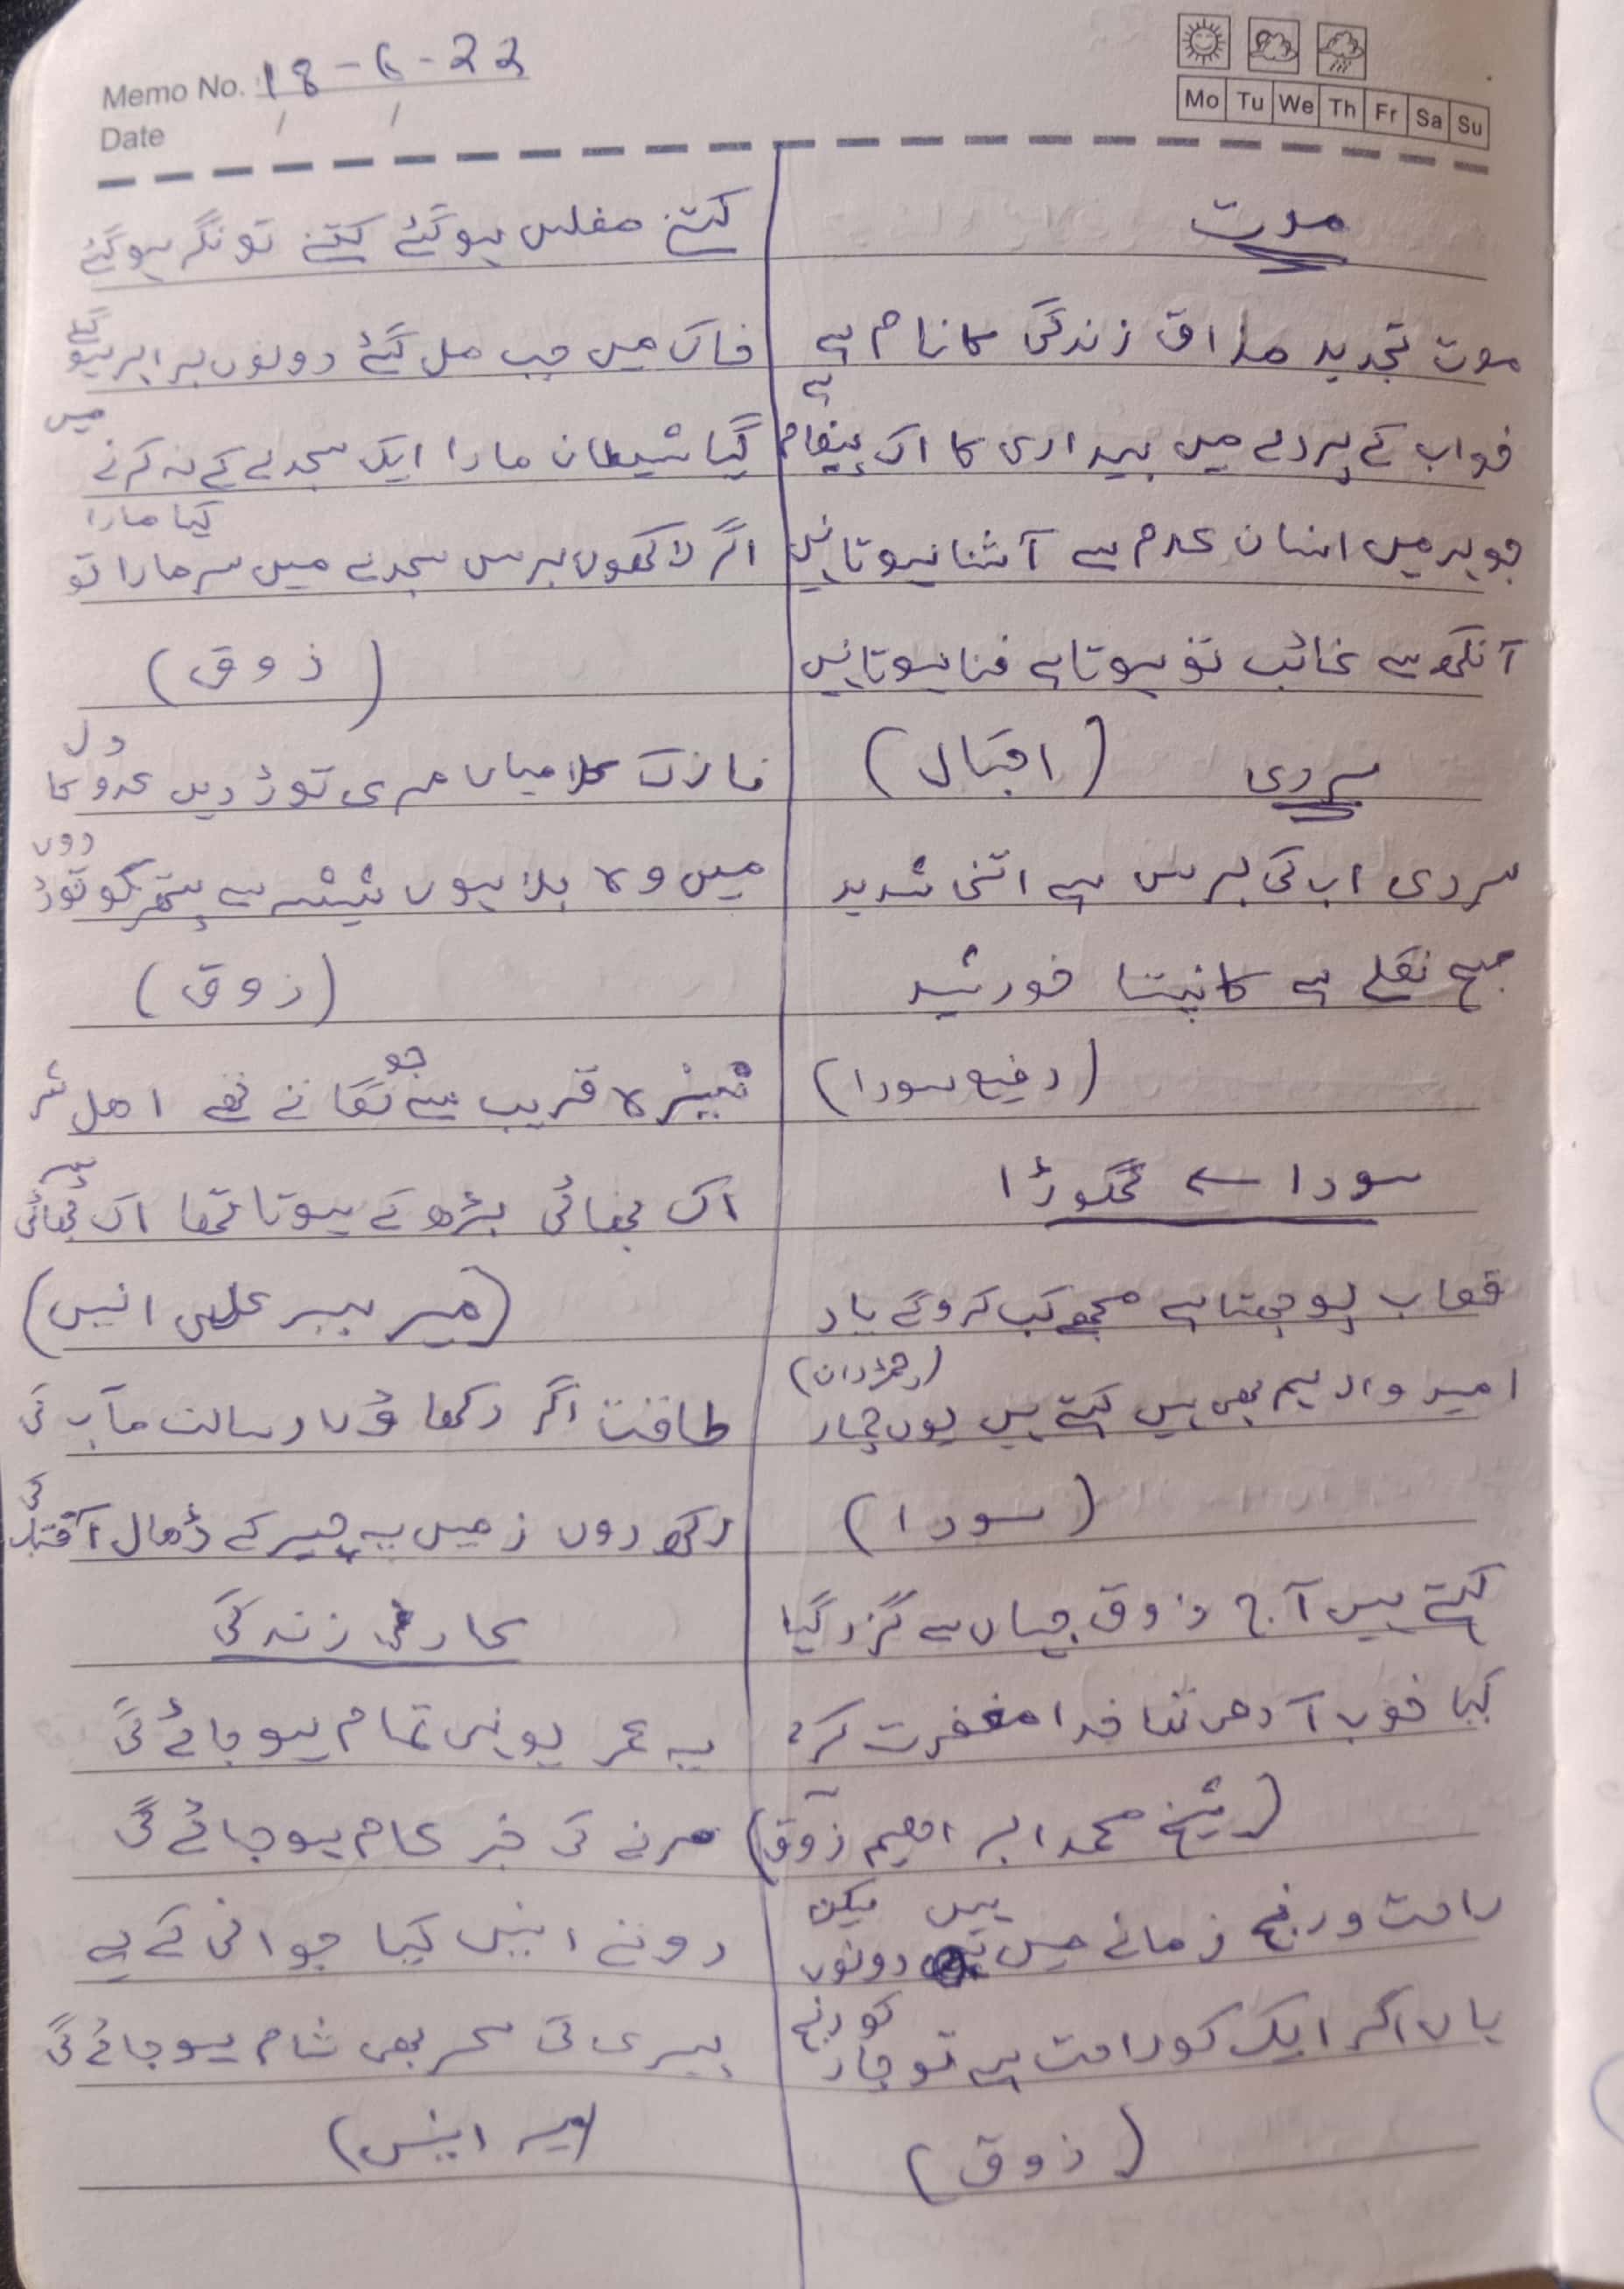 Memo No. 18-6-22
Date
Mo Tu We Th Fr Sa Su
موت
موت تجدید مذاق زندگی کا نام ہے
خواب کے پردے میں بیداری کا اک پیغام ہے
جوہر میں انسان عدم سے آشنا ہوتا نہیں
آنکھ سے غائب تو ہوتا ہے فنا ہوتا نہیں
(اقبال)
سردی
سردی اب کی برس ہے اتنی شدید
صبح نکلے ہے کانپتا خورشید
(رفیع سودا)
سودا ← گھوڑا
قصاب پوچھتا ہے مجھے کب کرو گے یاد
امیدوار ہم بھی ہیں کہتے ہیں یوں چمار
(سودا)
کہتے ہیں آج ذوق جہاں سے گزر گیا
کیا خوب آدمی تھا خدا مغفرت کرے
(شیخ محمد ابراھیم ذوق)
راحت و رنج زمانے میں ہیں دونوں لیکن
یاں اگر ایک کو راحت ہے تو چار کو رنج
(ذوق)
کتنے مفلس ہو گئے کتنے تونگر ہو گئے
خاک میں جب مل گئے دونوں برابر ہو گئے
گیا شیطان مارا ایک سجدے کے نہ کرنے میں
اگر لاکھوں برس سجدے میں سر مارا تو کیا مارا
(ذوق)
نازک کلامیاں مری توڑ دیں عدو کا دل
میں وہ بلا ہوں شیشہ سے پتھر کو توڑ دوں
(ذوق)
نیزہ قریب سے جو لگاتے تھے اھل شر
اک بھائی بڑھ کے ہوتا تھا اک بھائی
(میر ببر علی انیس)
طاقت اگر دکھاؤں رسالت مآب کی
رکھ دوں زمیں پہ چیر کے ڈھال آفتاب کی
عارضی زندگی
یہ عمر یونہی تمام ہو جائے گی
مرنے کی خبر عام ہو جائے گی
رونے انیس کیا جوانی کے لیے
پیری کی سحر بھی شام ہو جائے گی
(میر انیس)